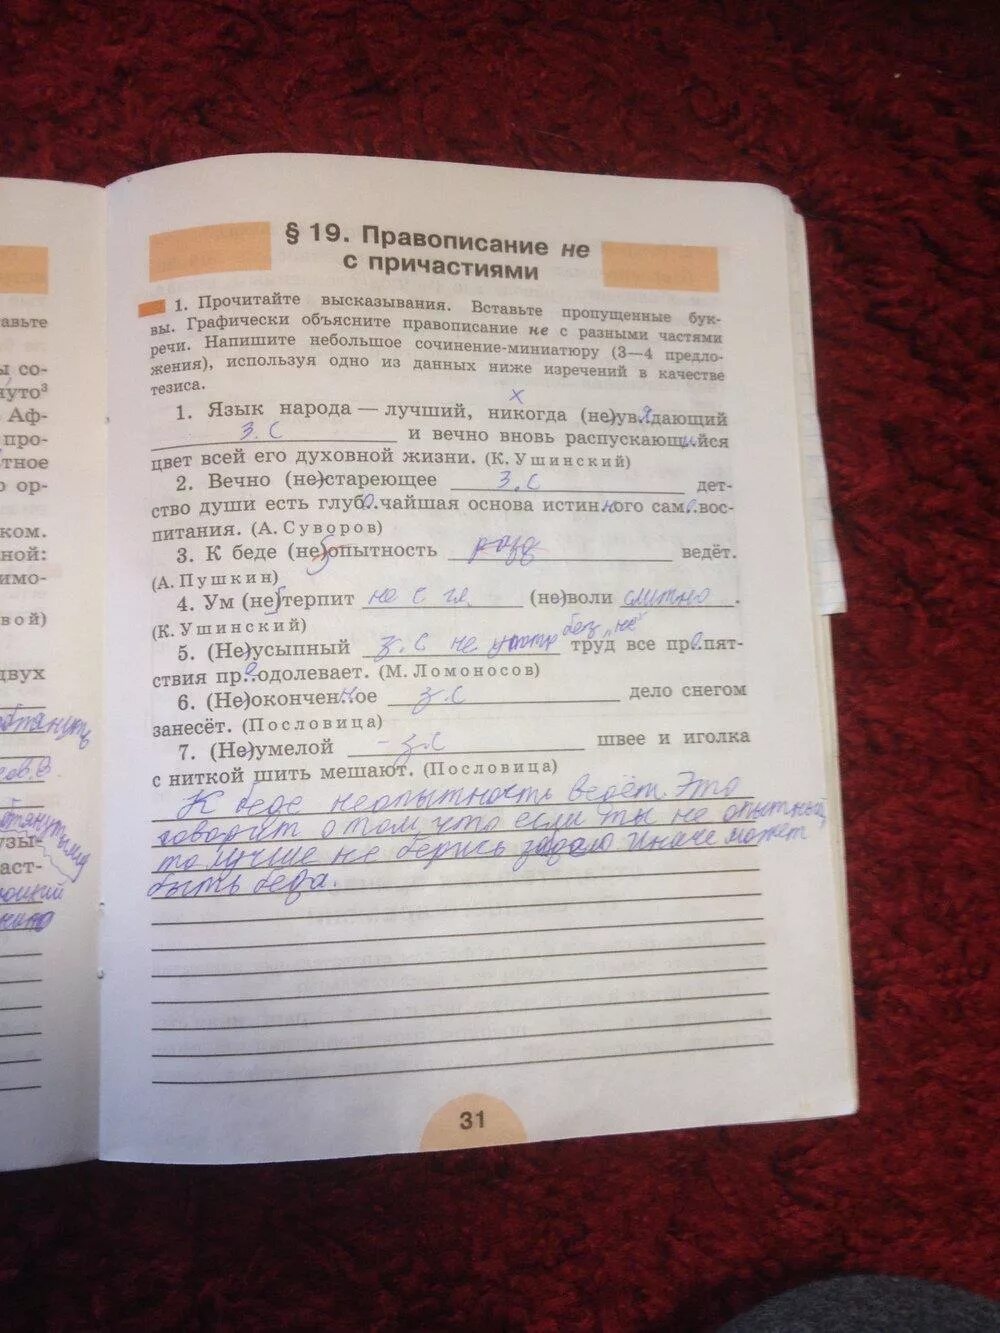 § 19. Правописание не
с причастиями
1. Прочитайте высказывания. Вставьте пропущенные бук-
вы. Графически объясните правописание не с разными частями
речи. Напишите небольшое сочинение-миниатюру (3—4 предло-
жения), используя одно из данных ниже изречений в качестве
тезиса.
х
1. Язык народа — лучший, никогда (не)увядающий
з. с и вечно вновь распускающийся
цвет всей его духовной жизни. (К. Ушинский)
2. Вечно (не)стареющее з. с дет-
ство души есть глубочайшая основа истинного самовос-
питания. (А. Суворов)
3. К беде (не)опытность разд ведёт.
(А. Пушкин)
4. Ум (не)терпит не с гл. (не)воли слитно.
(К. Ушинский)
5. (Не)усыпный з. с не употр без „не" труд все препят-
ствия преодолевает. (М. Ломоносов)
6. (Не)оконченное з. с дело снегом
занесёт. (Пословица)
7. (Не)умелой з. с швее и иголка
с ниткой шить мешают. (Пословица)
К беде неопытность ведёт. Это
говорит о том, что если ты не опытный,
то лучше не берись за дело иначе может
быть беда.
31
тавьте
ы со-
нуто³
Аф-
про-
тное
о ор-
ком.
ной:
имо-
вой)
двух
узы-
аст-